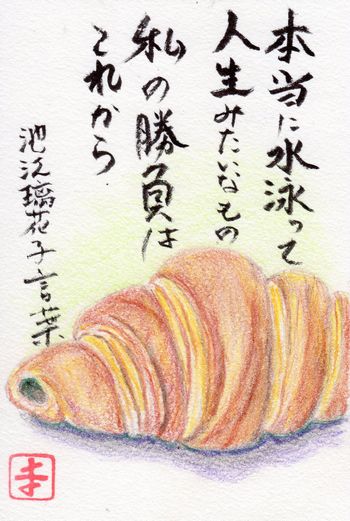 本当に水泳って
人生みたいなもの
私の勝負は
これから
池江璃花子言葉